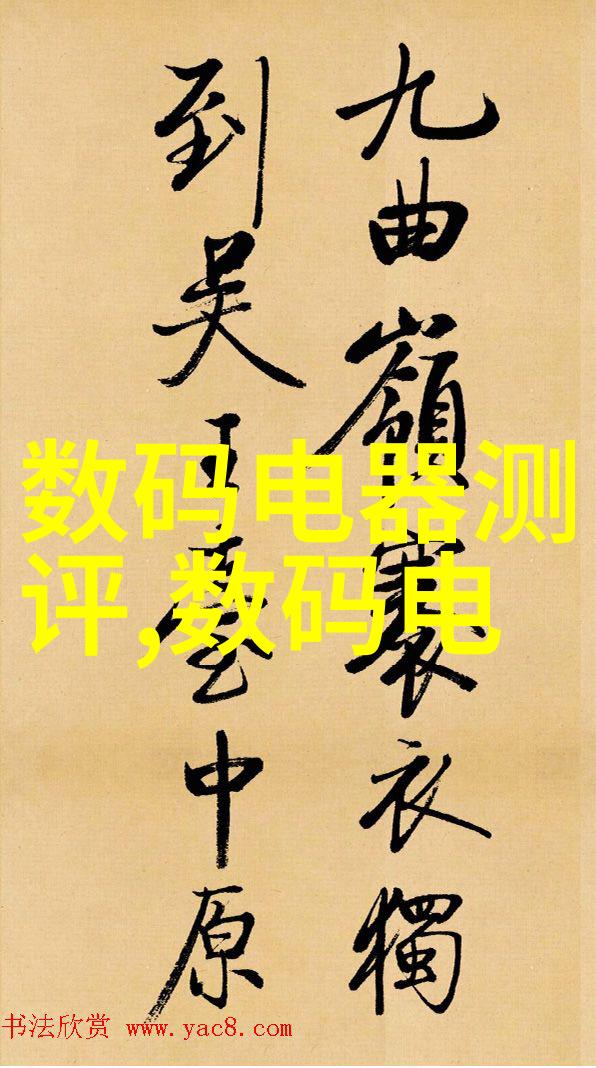 九曲嶺褰衣獨
到吳王臺中原
数码电器测
评,数码电
书法欣赏 www.yac8.com